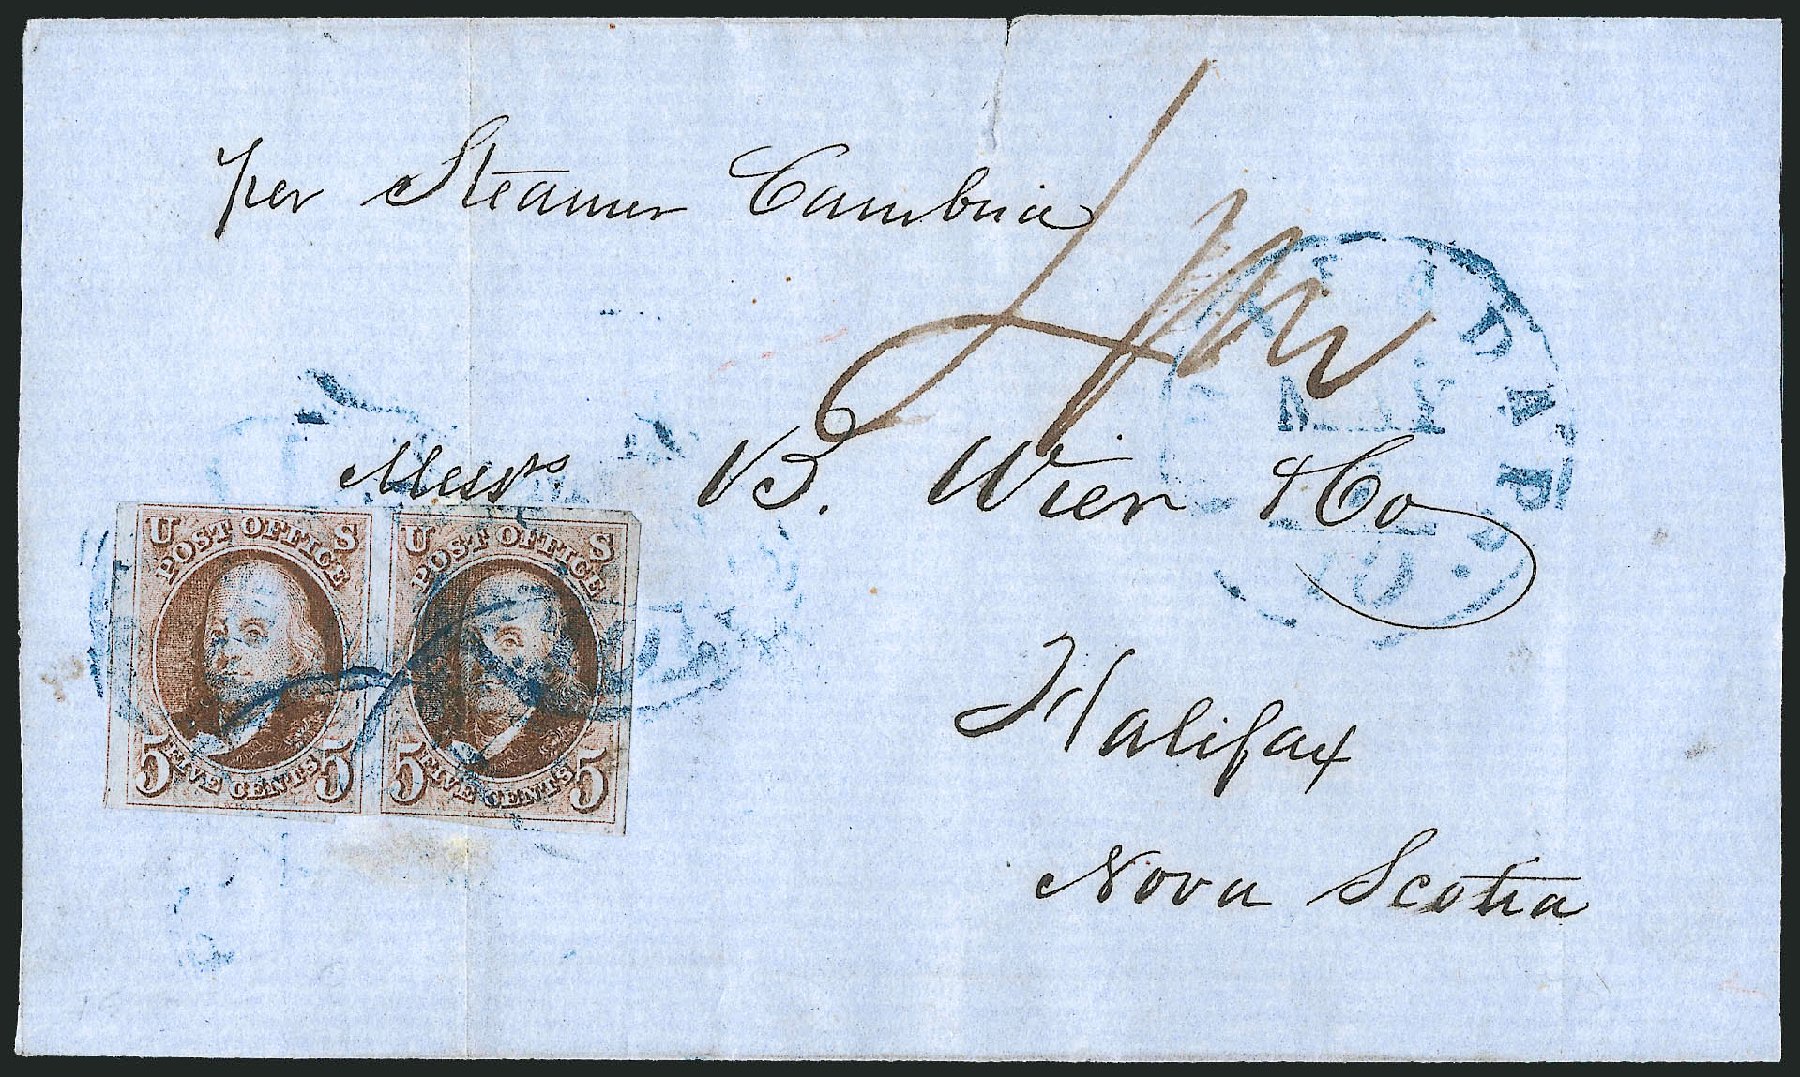 per Steamer Cambria
Messrs B. Wier & Co
Halifax
Nova Scotia
U S
POST OFFICE
5 FIVE CENTS 5
U S
POST OFFICE
5 FIVE CENTS 5
10